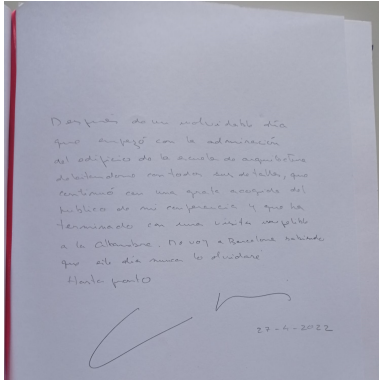 Después de un inolvidable día
que empezó con la admiración
del edificio de la escuela de arquitectura
deleitándome con todos sus detalles, que
continuó con una acogida del
público de mi conferencia y que ha
terminado con una visita
a la Alhambra. Me voy a Barcelona sabiendo
que este día nunca lo olvidaré
Hasta pronto
27-4-2022